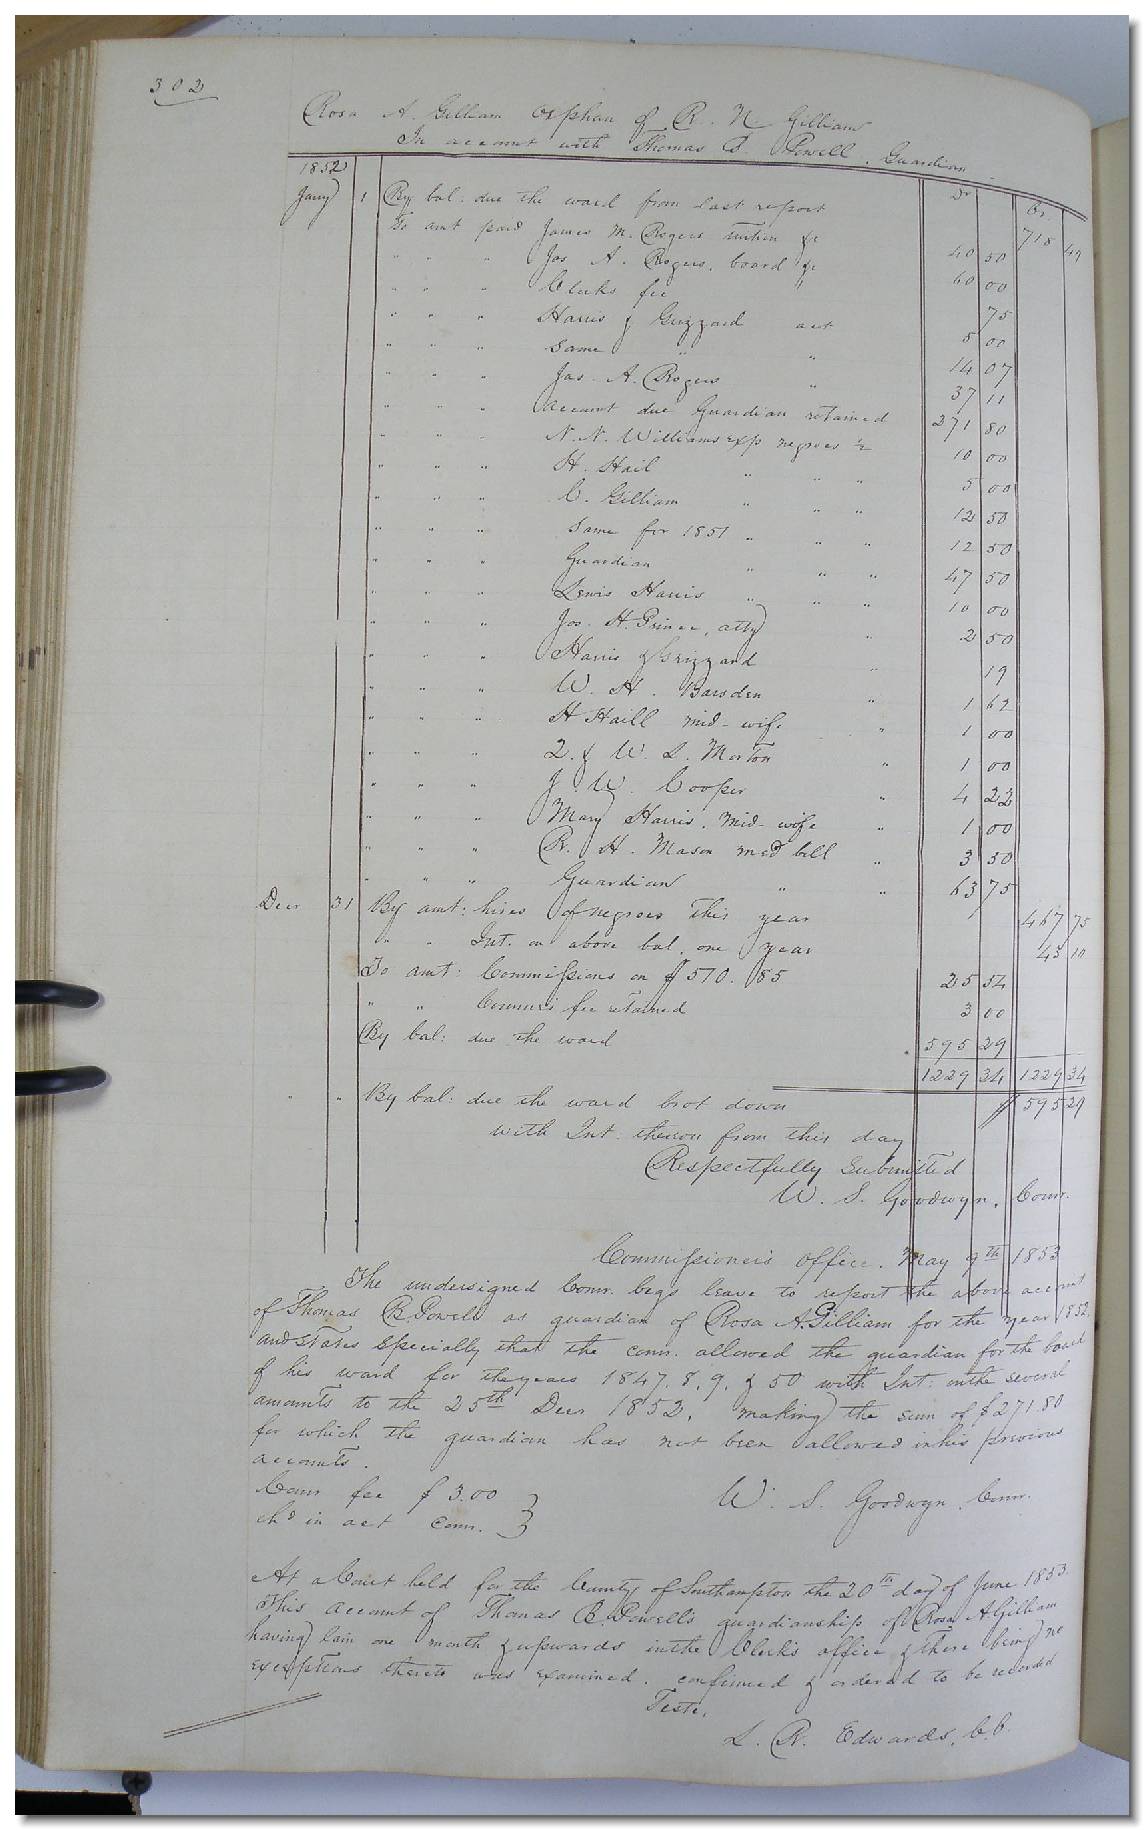 302
Rosa A. Gilliam orphan of R. N. Gilliam
In account with Thomas B. Powell. Guardian
1852 Dr Cr.
Jany 1 By bal: due the ward from last report 718 49
To amt paid James M. Rogers tuition &c 40 50
" " " Jas A. Rogers, board &c 60 00
" " " Clerks fee " 75
" " " Harris & Grizzard act 8 00
" " " Same " " 14 07
" " " Jas. A. Rogers " 37 11
" " " account due Guardian retained 271 80
" " " N. N. Williams exp negroes ½ 10 00
" " " H. Hail " " " 5 00
" " " C. Gilliam " " " 12 50
" " " Same for 1851 " " " 12 50
" " " Guardian " " " 47 50
" " " Lewis Harris " " " 10 00
" " " Jos. H. Prince, atty " 2 50
" " " Harris & Grizzard " 19
" " " W. H. Barsden " 1 62
" " " H Haill mid-wife " 1 00
" " " & W. L. Morton " 1 00
" " " J. W. Cooper " 4 22
" " " Mary Harris. mid-wife " 1 00
" " " R. H. Mason med bill " 3 50
" " " Guardian " " 63 75
Decr 31 By amt: hires of negroes this year 467 75
" " Int. on above bal. one year 43 10
To amt: Commissions on $510.85 25 54
" " Commrs fee retained 3 00
By bal: due the ward 595 29
1229 34 1229 34
" " By bal: due the ward brot down $ 595 29
with Int. thereon from this day
Respectfully submitted
W. S. Goodwyn, Comr.
Commissioners office. May 9th 1853
The undersigned Comr. begs leave to report the above account
of Thomas B. Powell as guardian of Rosa A. Gilliam for the year 1852,
and states specially that the comr. allowed the guardian for the board
of his ward for the years 1847. 8, 9, & 50 with Int: on the several
amounts to the 25th Decr 1852, making the sum of $271.80
for which the guardian has not been allowed in his previous
accounts.
Comr fee $3.00 }
chd in act Comr. }
W. S. Goodwyn Comr.
At a Court held for the County of Southampton the 20th day of June 1853
This account of Thomas B. Powell's guardianship of Rosa A Gilliam
having lain one month & upwards in the Clerk's office & there being no
exceptions thereto was examined. confirmed & ordered to be recorded
Teste.
L. R. Edwards, C.C.